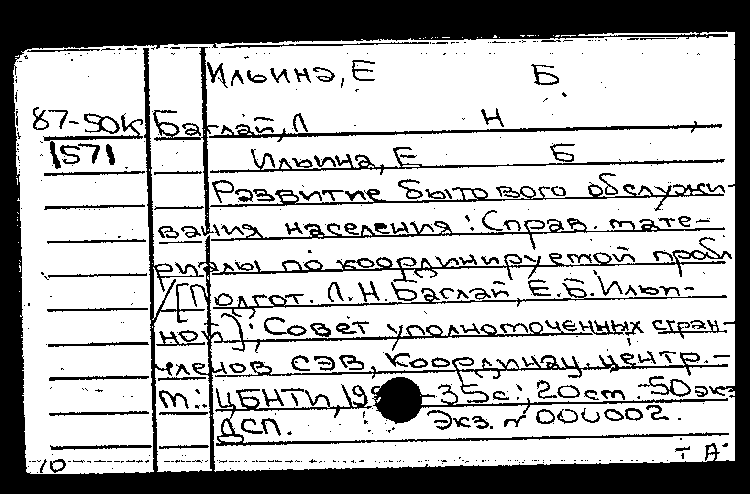 Ильина, Е Б.
87-50К Баглай, Л Н ,
1571 Ильина, Е Б
Развитие бытового обслужи-
вания населения : Справ. мате-
риалы по координируемой пробл
/[Подгот. Л.Н. Баглай, Е.Б. Ильи-
ной]; Совет уполномоченных стран-
членов СЭВ, Координац. центр. -
М.: ЦБНТИ, -35с.; 20см. -50экз
ДСП. Экз. № 000002.
10 Т А